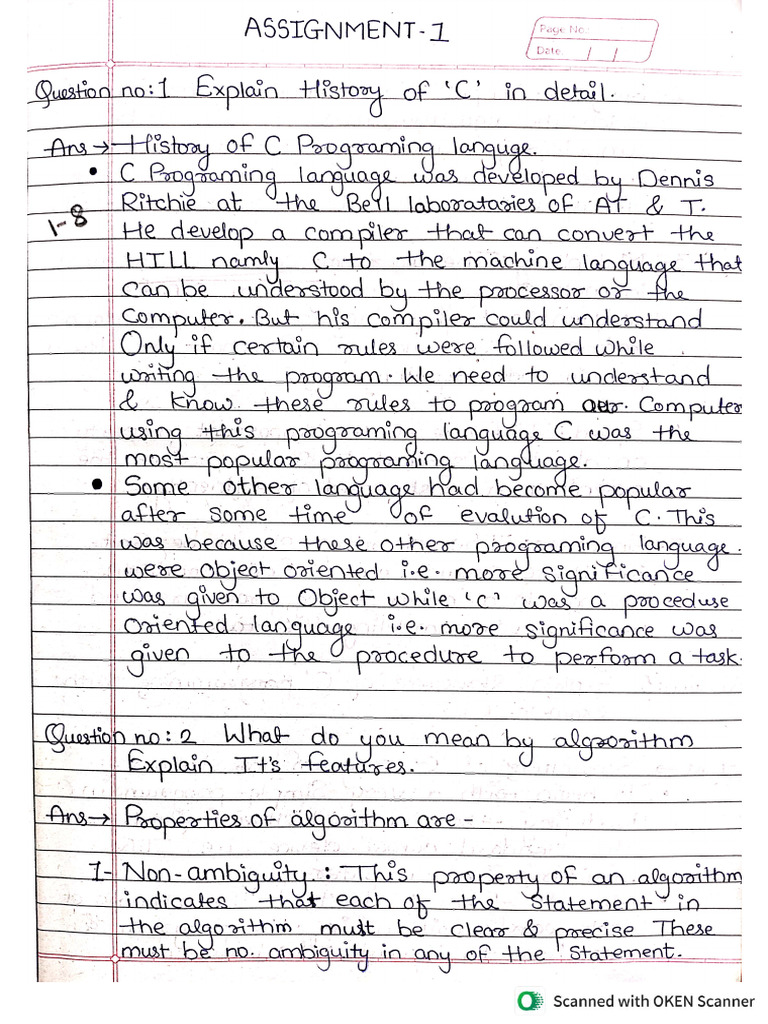 ASSIGNMENT-1
Page No.
Date. / /
Question no:1 Explain History of 'C' in detail.
Ans → History of C Programing languge.
• C Programing language was developed by Dennis
Ritchie at the Bell laborataries of AT & T.
1-8
He develop a compiler that can convert the
HILL namly C to the machine language that
can be understood by the processor or the
Computer. But his compiler could understand
Only if certain rules were followed while
writing the program. We need to understand
& know these rules to program our. Computer
using this programing language C was the
most popular programing language.
• Some other language had become popular
after some time of evalution of C. This
was because these other programing language.
were object oriented i.e. more significance
was given to Object while 'c' was a proceduse
oriented language i.e. more significance was
given to the procedure to perform a task.
Question no: 2 What do you mean by algorithm
Explain It's features.
Ans → Properties of algorithm are -
1- Non-ambiguity : This property of an algorithm
indicates that each of the statement in
the algorithm must be clear & precise These
must be no. ambiguity in any of the statement.
Scanned with OKEN Scanner